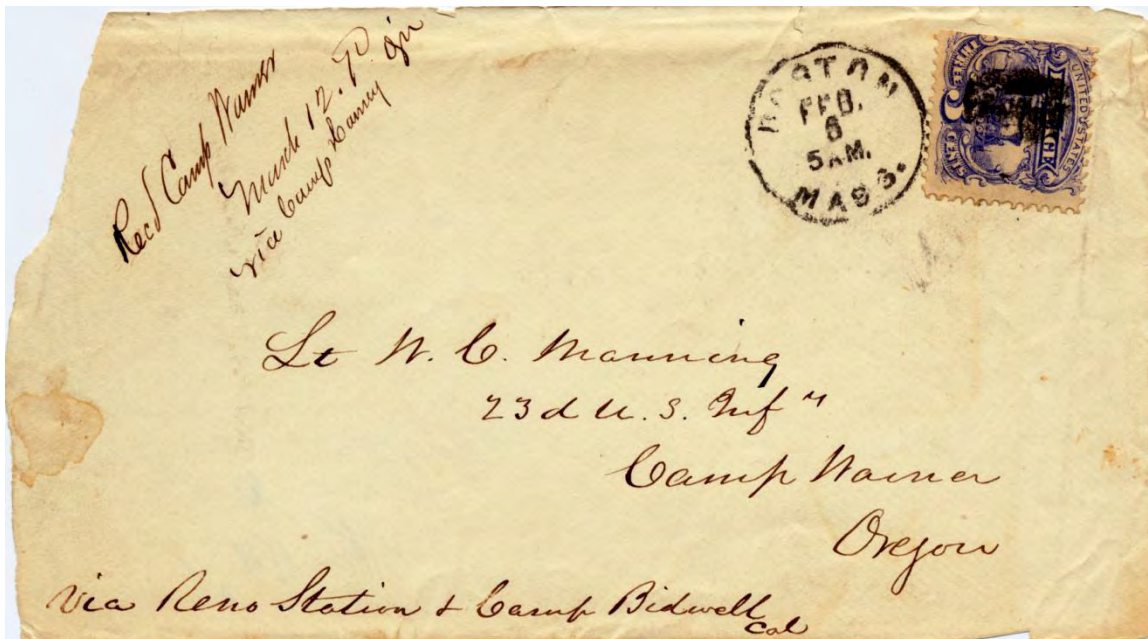 Recd Camp Warner
March 12. P.
via Camp
BOSTON
FEB.
6
5 AM.
MASS.
UNITED STATES
THREE
CENTS
Lt W. C. Manning
23d U. S. Infy
Camp Warner
Oregon
Via Reno Station & Camp Bidwell
Cal